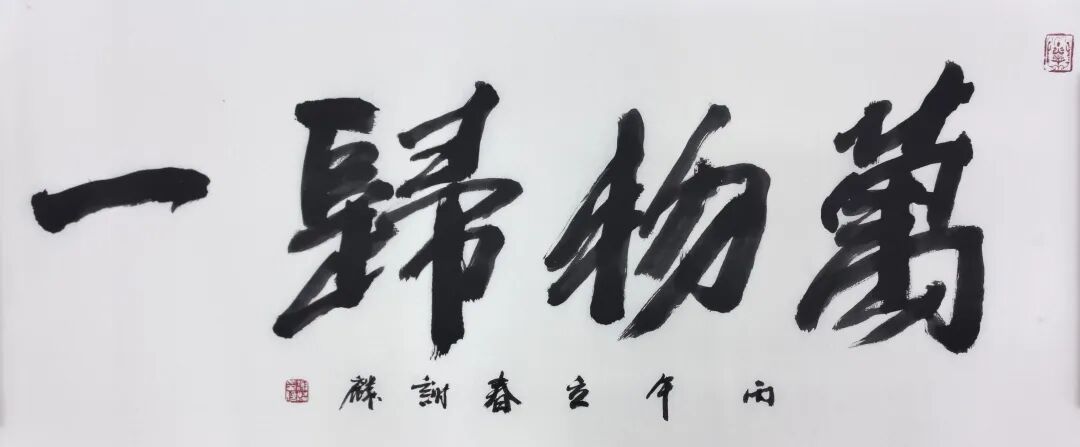 萬物歸一
丙午立春謝麟